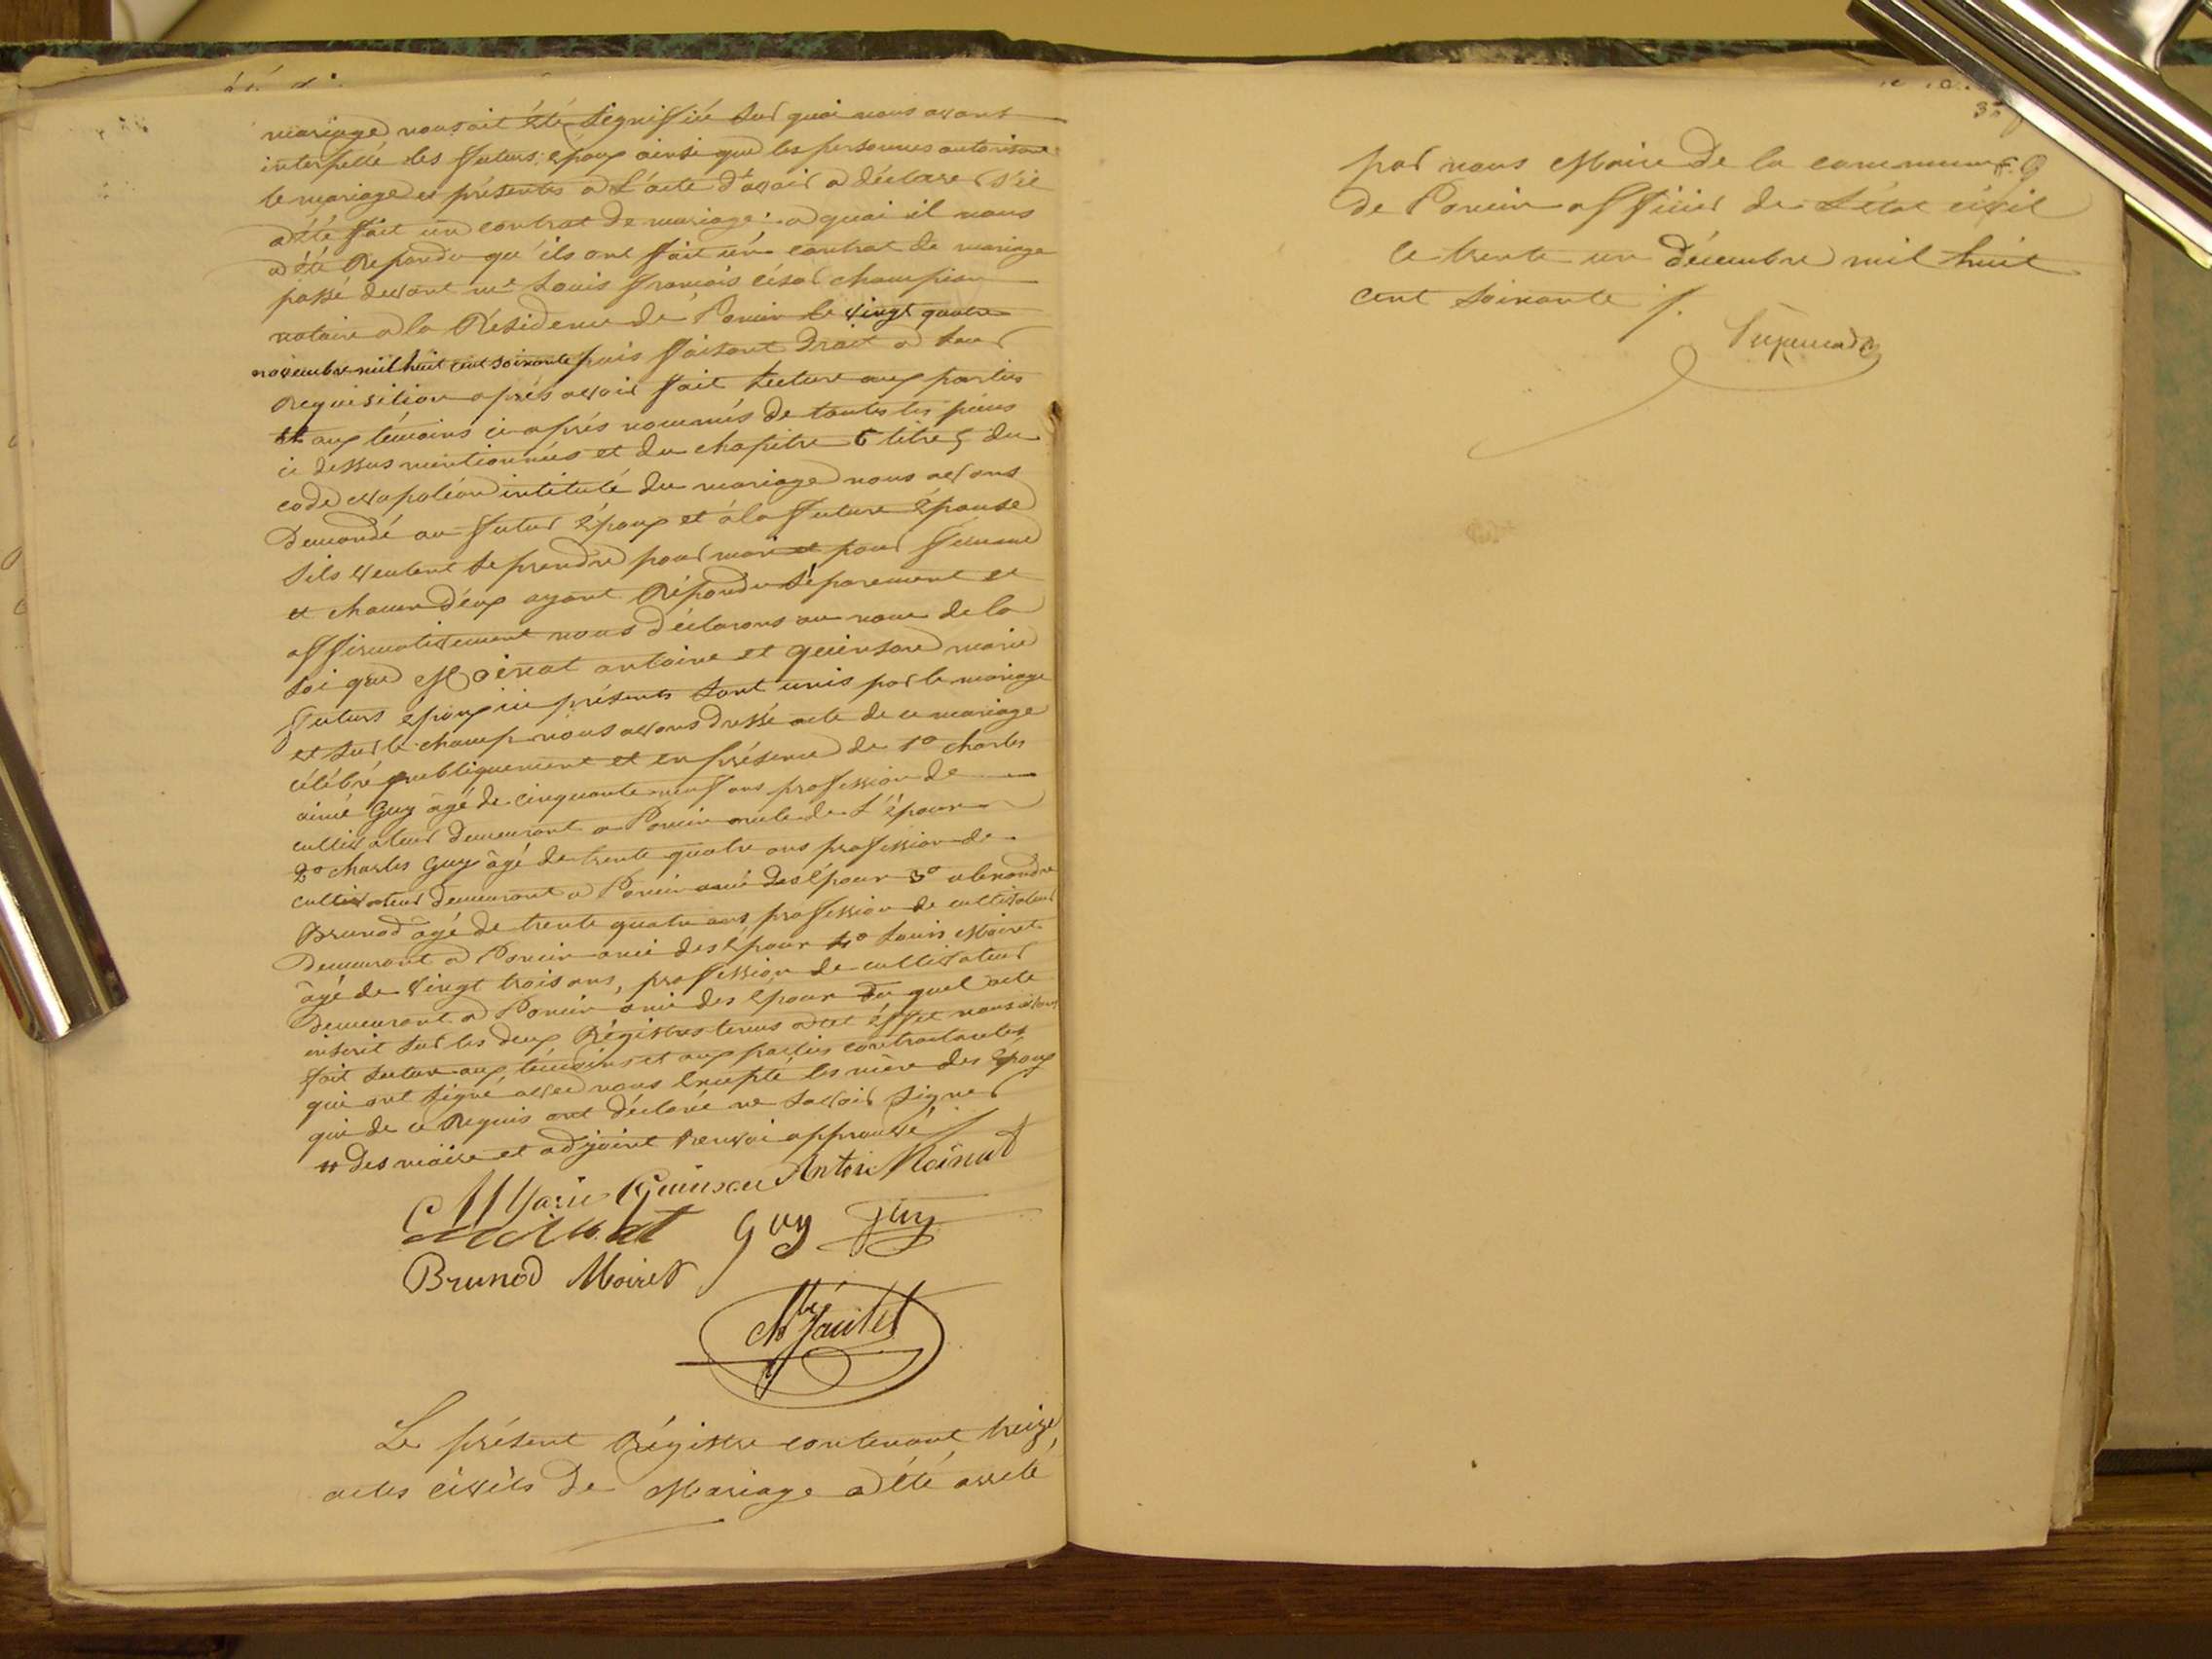 mariage nous ait été signiffié sur quoi nous avons
interpellé les futurs époux ainsi que les personnes autorisant
le mariage et présentes a l'acte d'avoir a déclarer s'il
a été fait un contrat de mariage. a quoi il nous
a été Répondu qu'ils ont fait un contrat de mariage
passé devant me Louis françois césar champion
notaire a la Résidence de Poncin le vingt quatre
novembre mil huit cent soixante puis faisant droit a leur
Requisition aprés avoir fait lecture aux parties
et aux témoins ci aprés nommés de toutes les pièces
ci dessus mentionnées et du chapitre 6 titre 5 du
code Napoléon intitulé du mariage nous avons
Demandé au futur époux et à la future épouse
s'ils veulent se prendre pour mari et pour femme
et chacun d'eux ayant Répondu séparement et
affirmativement nous déclarons au nom de la
loi que Moinat antoine et guinsard marie
futurs époux ici présents sont unis par le mariage
et sur le champ nous avons dressé acte de ce mariage
célébré publiquement et en présence de 1o charles
aimé Guy âgé de cinquante neuf ans profession de
cultivateur demeurant a Poncin oncle de l'époux
2o charles Guy âgé de trente quatre ans profession de
cultivateur demeurant a Poncin ami des époux 3o alexandre
Brunod âgé de trente quatre ans, profession de cultivateur
Demeurant a Poncin ami des époux 4o Louis Moiret
âgé de vingt trois ans, profession de cultivateur
demeurant a Poncin ami des époux du quel acte
inscrit sur les deux Régistres tenus a cet éffet nous avons
fait lecture aux témoins et aux parties contractantes
qui ont signé avec nous éxcepté les mère des époux
qui de ce Requis ont déclaré ne savoir signer
# des maire et adjoint renvoi approuvé
Marie Guinsard Antoine Moinat
Moinat Guy Guy
Brunod Moiret
Le présent Régistre contenant treize
actes civils de Mariage a été arrêté
par nous Maire de la commune
de Poncin officier de l'état civil
le trente un décembre mil huit
cent soixante /.